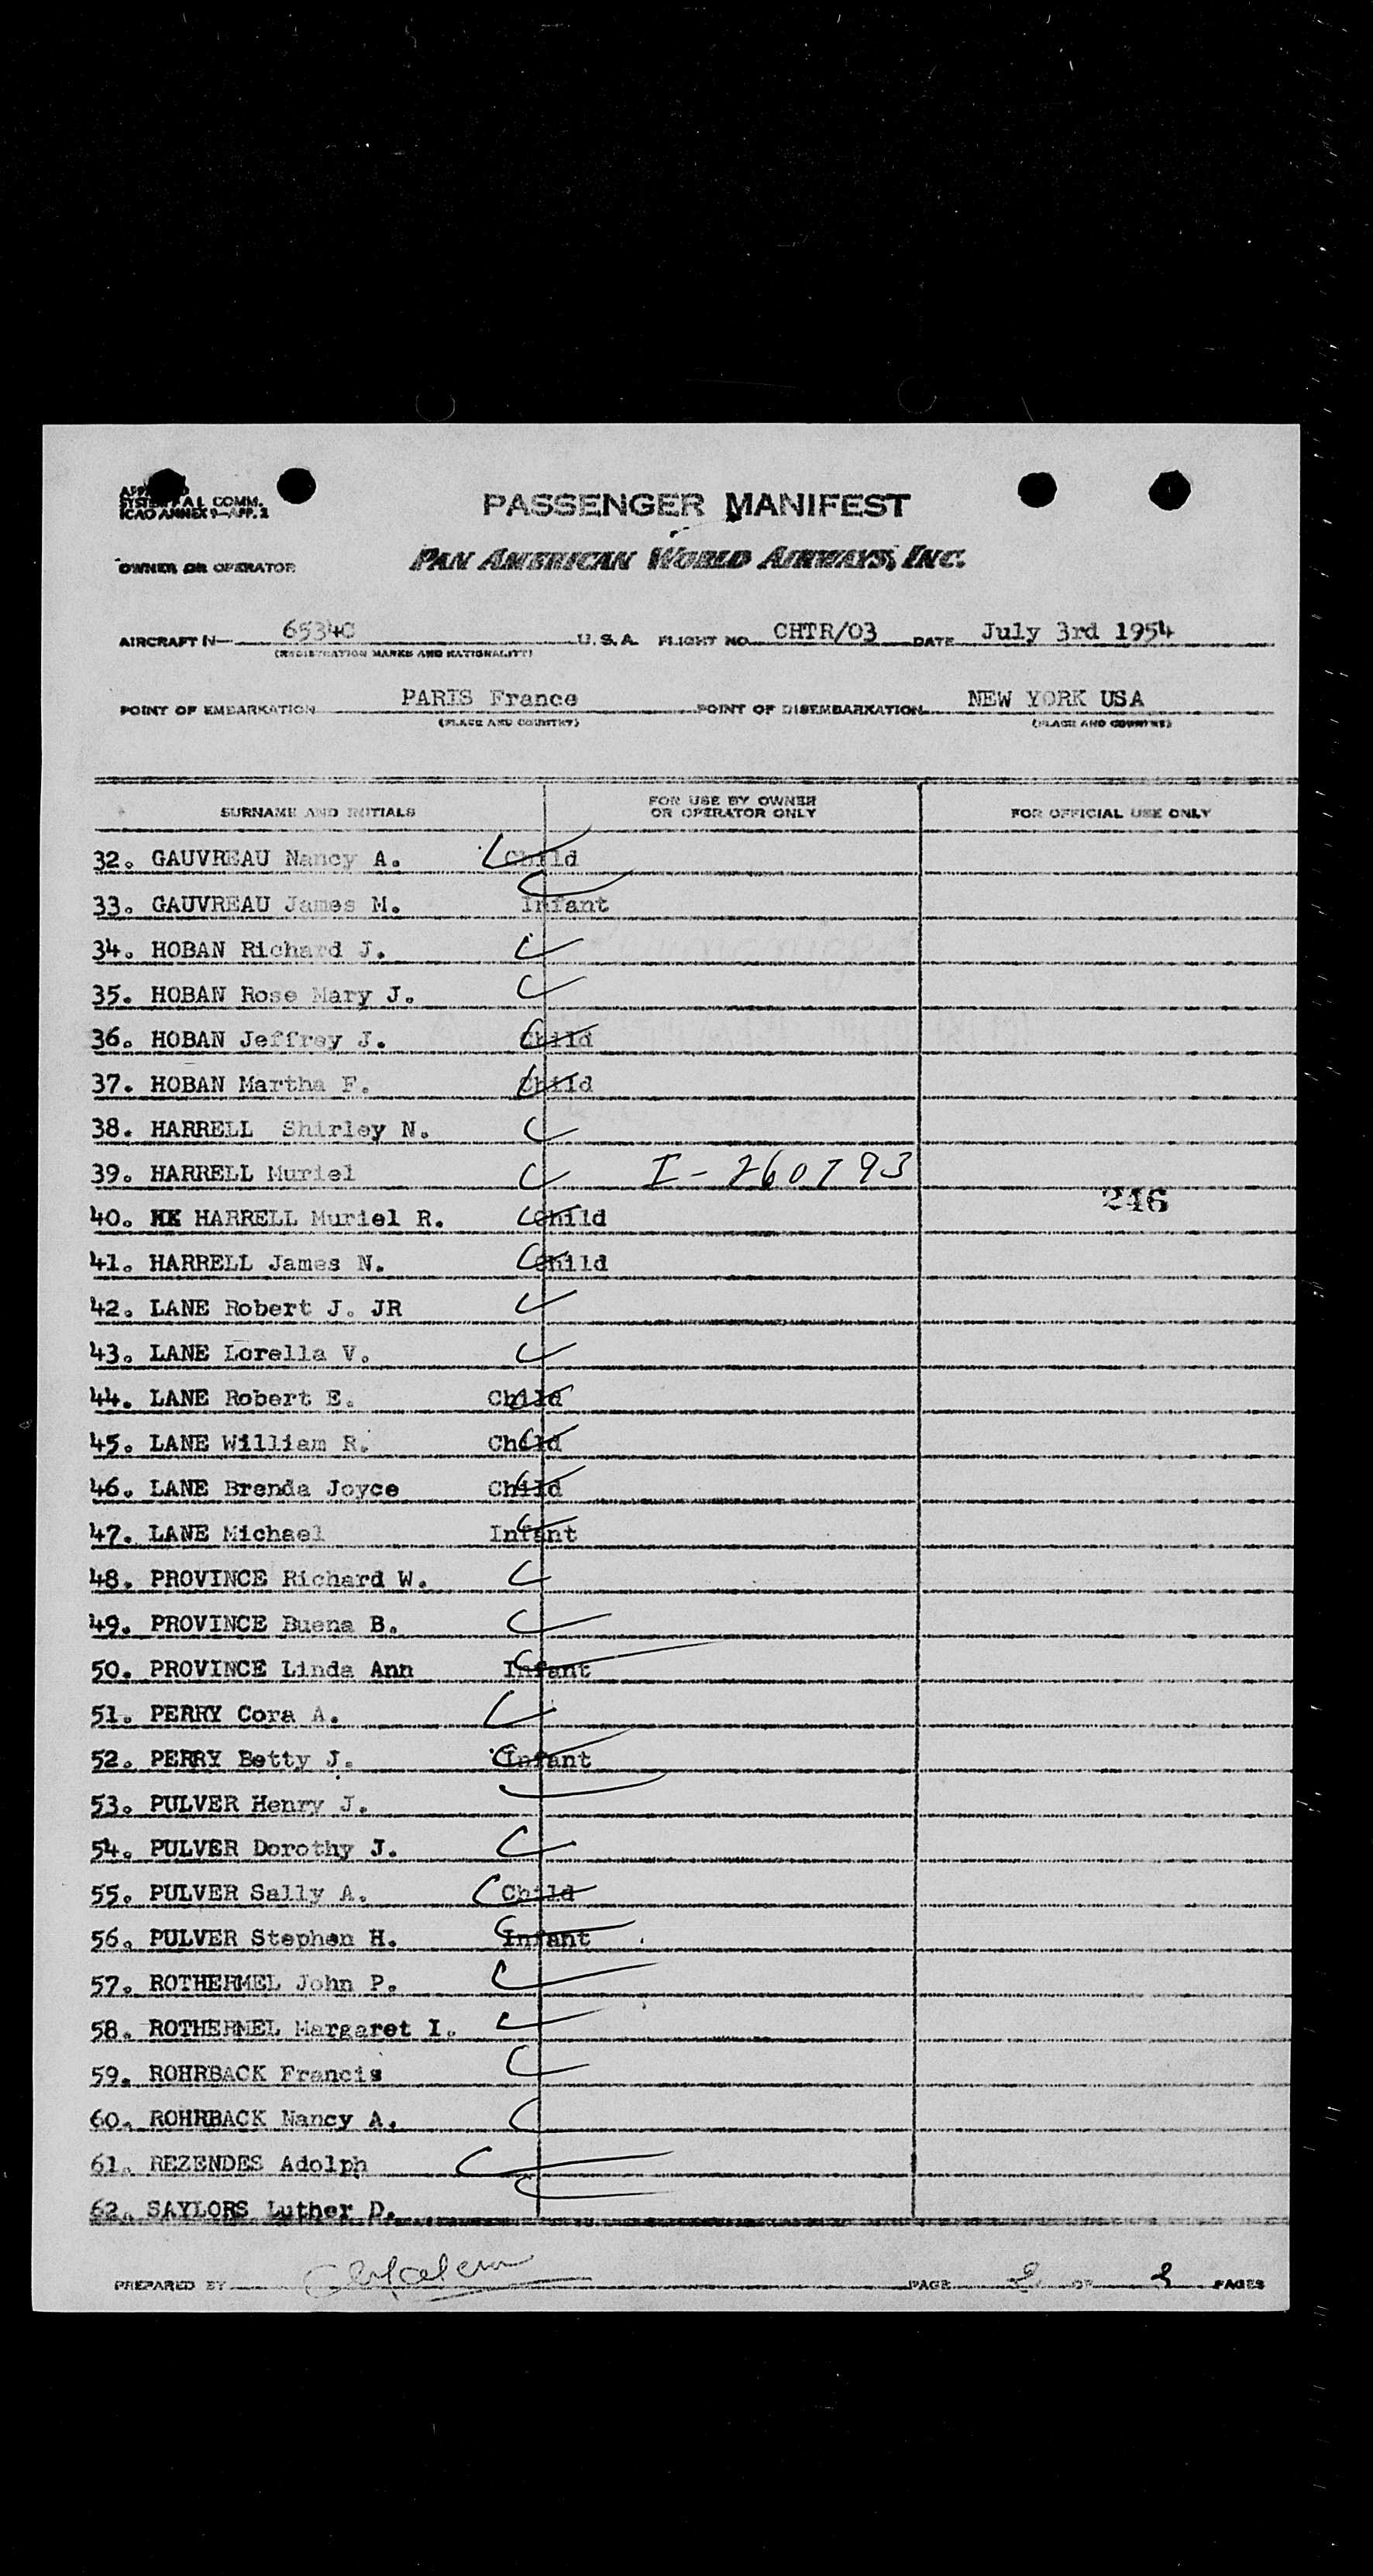 APP
SYST AL COMM.
ICAO ANNEX 9—APP. 2
PASSENGER MANIFEST
OWNER OR OPERATOR PAN AMERICAN WORLD AIRWAYS, INC.
AIRCRAFT N— 65340 U. S. A. FLIGHT NO. CHTR/03 DATE July 3rd 1954
(REGISTRATION MARKS AND NATIONALITY)
POINT OF EMBARKATION PARIS France POINT OF DISEMBARKATION NEW YORK USA
(PLACE AND COUNTRY) (PLACE AND COUNTRY)
SURNAME AND INITIALS FOR USE BY OWNER OR OPERATOR ONLY FOR OFFICIAL USE ONLY
32. GAUVREAU Nancy A. Child
33. GAUVREAU James M. Infant
34. HOBAN Richard J.
35. HOBAN Rose Mary J.
36. HOBAN Jeffrey J. Child
37. HOBAN Martha F. Child
38. HARRELL Shirley N.
39. HARRELL Muriel I-260793
246
40. HARRELL Muriel R. Child
41. HARRELL James N. Child
42. LANE Robert J. JR
43. LANE Lorella V.
44. LANE Robert E. Child
45. LANE William R. Child
46. LANE Brenda Joyce Child
47. LANE Michael Infant
48. PROVINCE Richard W.
49. PROVINCE Buena B.
50. PROVINCE Linda Ann Infant
51. PERRY Cora A.
52. PERRY Betty J. Infant
53. PULVER Henry J.
54. PULVER Dorothy J.
55. PULVER Sally A. Child
56. PULVER Stephen H. Infant
57. ROTHERMEL John P.
58. ROTHERMEL Margaret I.
59. ROHRBACK Francis
60. ROHRBACK Nancy A.
61. REZENDES Adolph
62. SAYLORS Luther D.
PREPARED BY PAGE 2 OF 2 PAGES